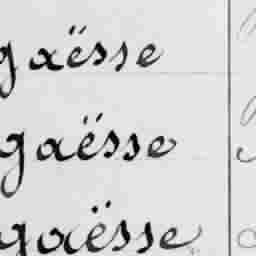 gaësse
gaësse
gaësse